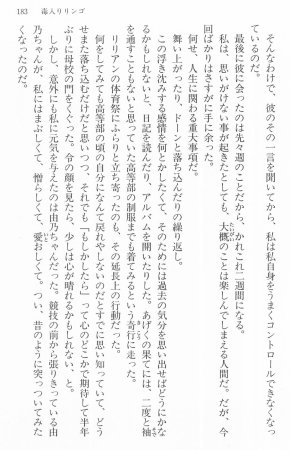 183　毒入りリンゴ
そんなわけで、彼のその一言を聞いてから、私は私自身をうまくコントロールできなくなっ
ているのだ。
最後に彼に会ったのは先々週のことだから、かれこれ二週間になる。
私は、思いがけない事が起きたとしても、大概のことは楽しんでしまえる人間だ。だが、今
回ばかりはさすがに手に余った。
何せ、人生に関わる重大事項だ。
舞い上がったり、ドーンと落ち込んだりの繰り返し。
この浮き沈みする感情を何とかしたくて、そのためには過去の気分を思い出せばどうにかな
るかもしれないと、日記を読んだり、アルバムを開いたりした。あげくの果てには、二度と袖
を通すことはないと思っていた高等部の制服までも着てみるという奇行に走った。
リリアンの体育祭にふらりと立ち寄ったのも、その延長上の行動だった。
何をしてみても高等部の頃の自分になんて戻れやしないのだとすでに思い知っていて、どう
せまた落ち込むだけだと思いつつ、それでも「もしかしたら」って心のどこかで期待して半年
ぶりに母校の門をくぐった。令の顔を見たら、少しは心が晴れるかもしれない、と。
しかし、意外にも私に元気を与えたのは由乃ちゃんだった。競技の前から張りきっている由
乃ちゃんが、私にはまぶしくて、憎らしくて、愛おしくて。つい、昔のように突っついてみた
くなったのだ。